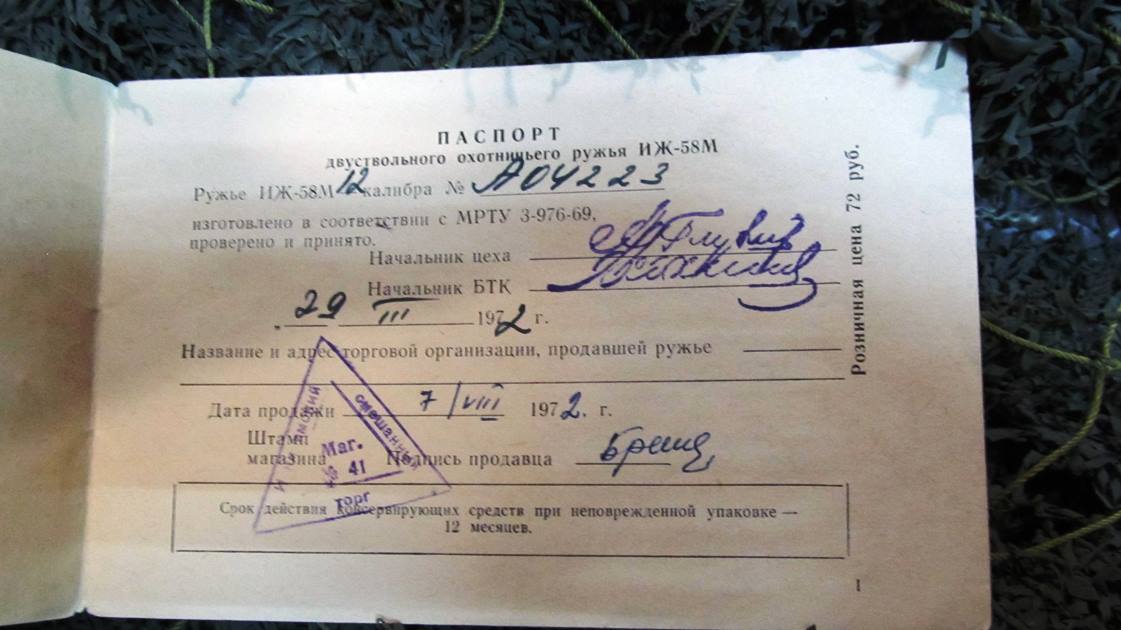 ПАСПОРТ
двуствольного охотничьего ружья ИЖ-58М
Ружье ИЖ-58М 12 калибра № А04223
изготовлено в соответствии с МРТУ 3-976-69,
проверено и принято.
Начальник цеха
Начальник БТК
29 III 1972 г.
Название и адрес торговой организации, продавшей ружье
Дата продажи 7/VIII 1972. г.
Штамп
магазина Подпись продавца
смешанный
Маг.
№ 41
Торг
Срок действия консервирующих средств при неповрежденной упаковке —
12 месяцев.
1
Розничная цена 72 руб.